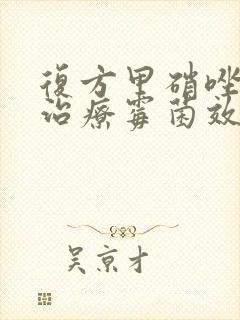 復方甲硝唑
治療霉菌效
吴京才